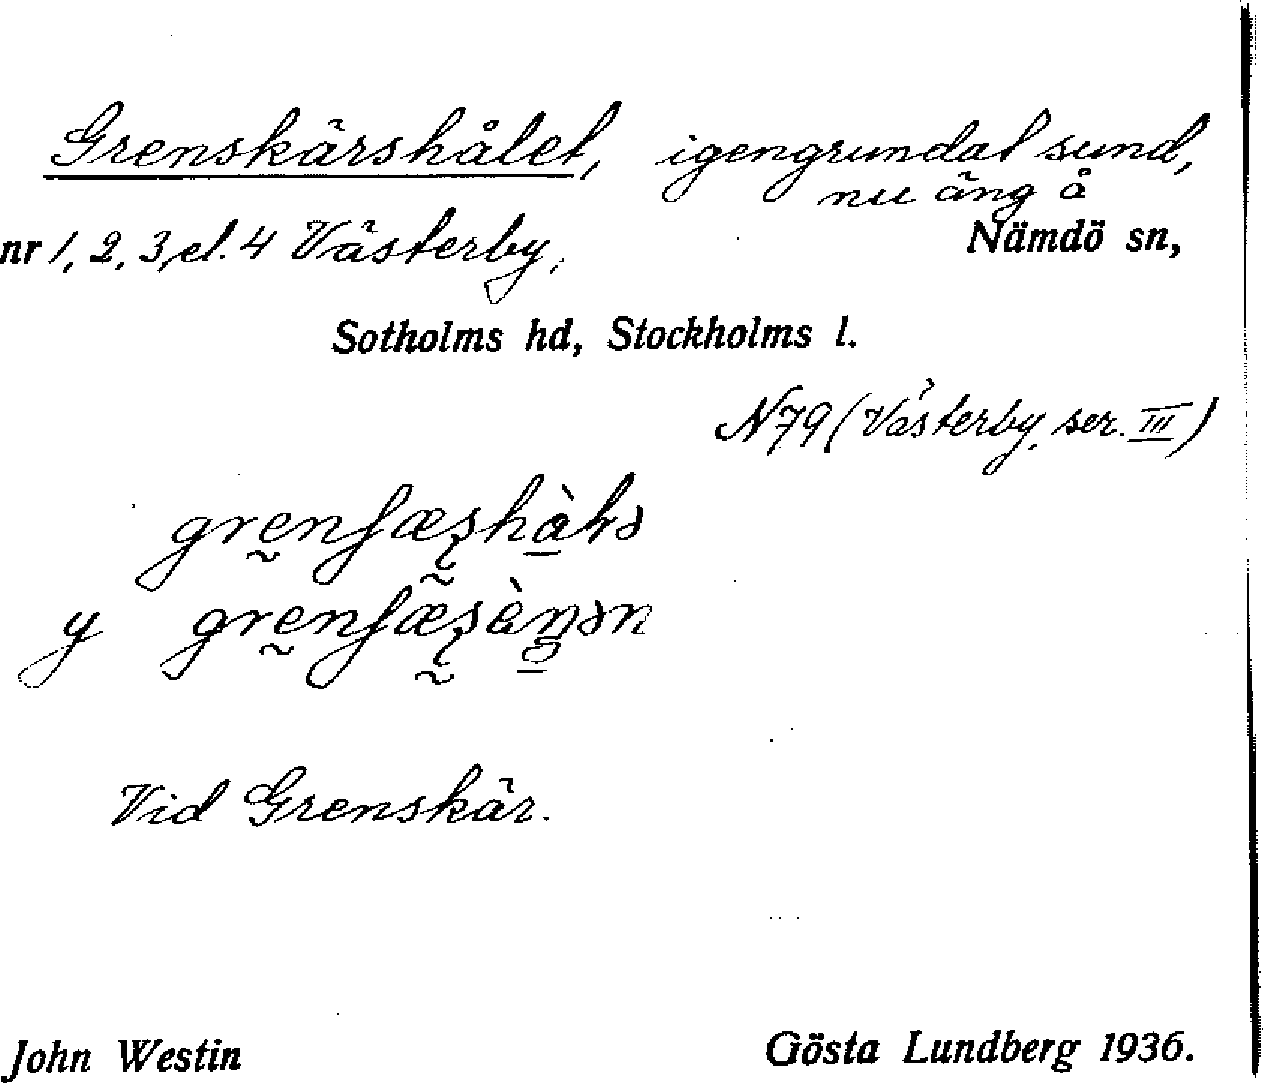 Grenskärshålet, igengrundat sund,
nu äng å
nr 1, 2, 3, el. 4 Västerby, Nämdö sn,
Sotholms hd, Stockholms l.
N79 (Västerby, ser. III)
y
Vid Grenskär.
John Westin Gösta Lundberg 1936.